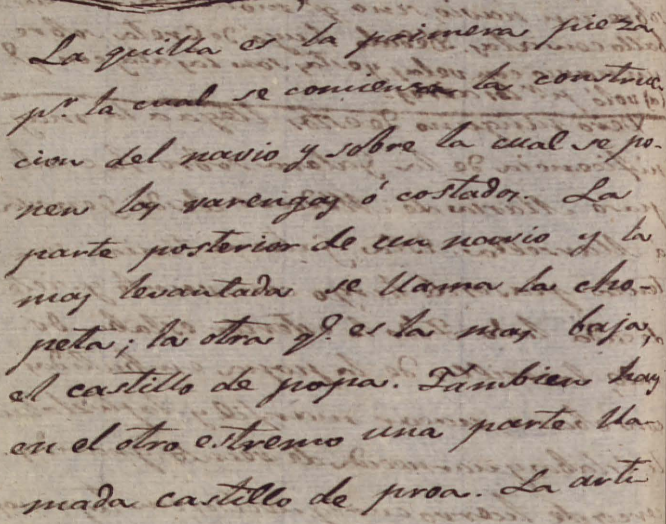 La quilla es la primera pieza
pr. la cual se comienza la construc
cion del navio y sobre la cual se po-
nen las varengas ó costados. La
parte posterior de un navio y la
mas levantada se llama la cho-
peta; la otra q.e es la mas baja,
el castillo de popa. Tambien hay
en el otro estremo una parte lla-
mada castillo de proa. La arti